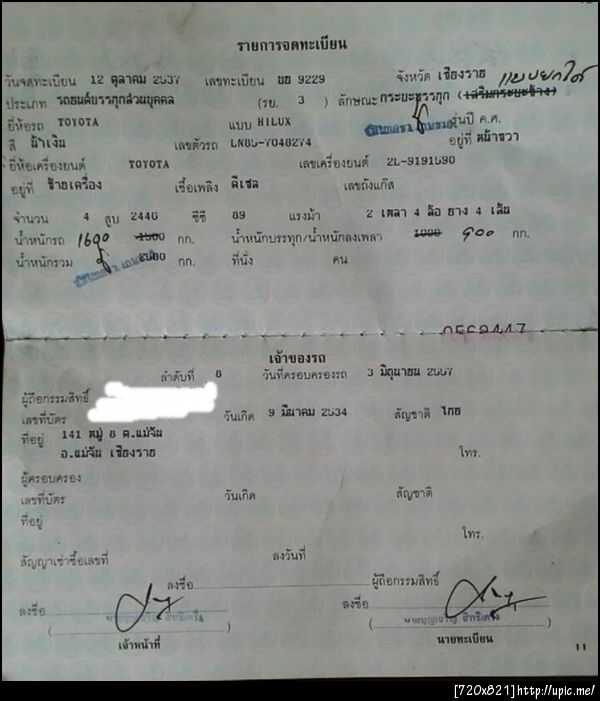 รายการจดทะเบียน
วันจดทะเบียน 12 ตุลาคม 2537 เลขทะเบียน บย 9229 จังหวัด เชียงราย
ประเภท รถยนต์บรรทุกส่วนบุคคล (รย. 3 ) ลักษณะ กระบะบรรทุก (เสริมกระบะข้าง) แบบยกได้
ยี่ห้อรถ TOYOTA แบบ HILUX รุ่นปี ค.ศ.
สี น้ำเงิน เลขตัวรถ LN85-7048274 อยู่ที่ หน้าขวา
ยี่ห้อเครื่องยนต์ TOYOTA เลขเครื่องยนต์ 2L-9191590
อยู่ที่ ซ้ายเครื่อง เชื้อเพลิง ดีเซล เลขถังแก๊ส
จำนวน 4 สูบ 2446 ซีซี 89 แรงม้า 2 เพลา 4 ล้อ ยาง 4 เส้น
น้ำหนักรถ 1600 1500 กก. น้ำหนักบรรทุก/น้ำหนักลงเพลา 1000 900 กก.
น้ำหนักรวม 2500 กก. ที่นั่ง คน
เจ้าของรถ
ลำดับที่ 8 วันที่ครอบครองรถ 3 มิถุนายน 2557
ผู้ถือกรรมสิทธิ์
เลขที่บัตร วันเกิด 9 มีนาคม 2534 สัญชาติ ไทย
ที่อยู่ 141 หมู่ 8 ต.แม่จัน
อ.แม่จัน เชียงราย โทร.
ผู้ครอบครอง
เลขที่บัตร วันเกิด สัญชาติ
ที่อยู่
โทร.
สัญญาเช่าซื้อเลขที่ ลงวันที่
ลงชื่อ ผู้ถือกรรมสิทธิ์
ลงชื่อ ลงชื่อ
( ) ( )
เจ้าหน้าที่ นายทะเบียน
11
[720x821]http://upic.me/